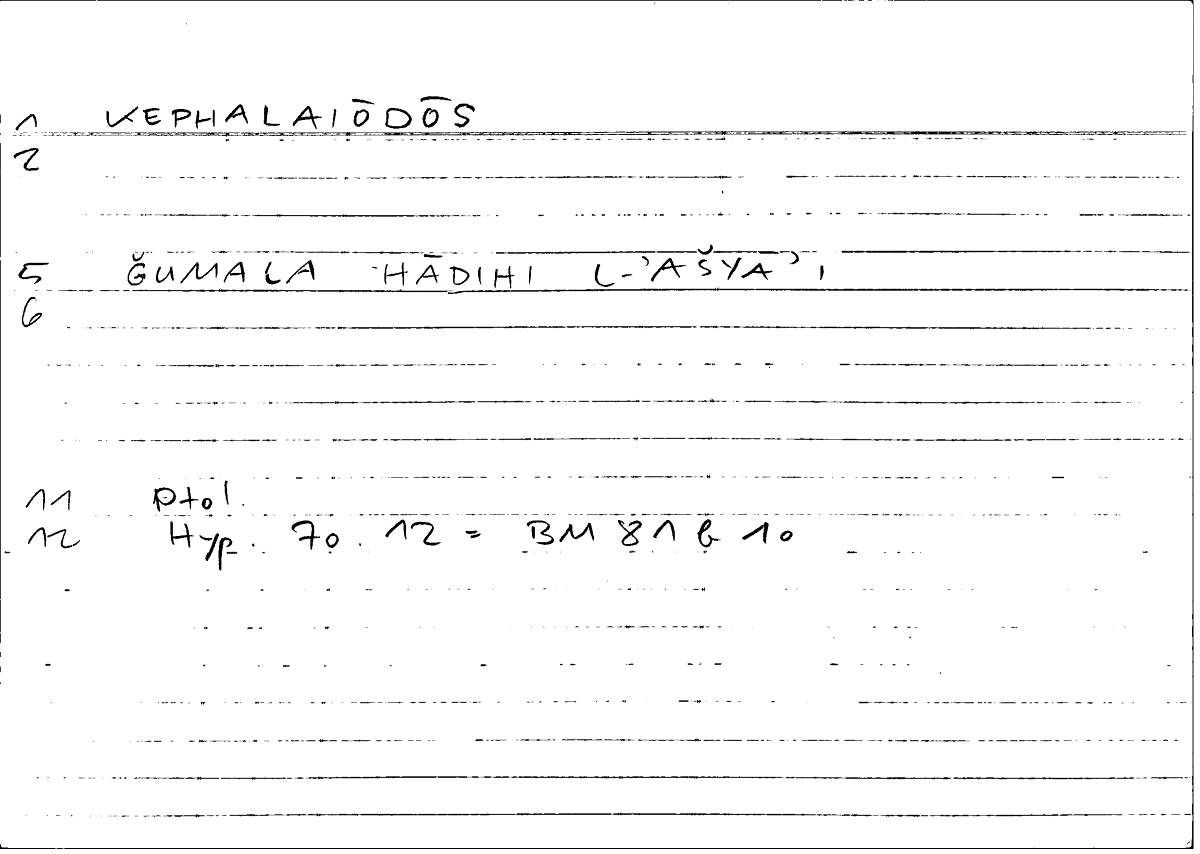 1 KEPHALAIŌDŌS
2
5 ǦUMALA HĀDIHI L-ʾAŠYĀʾI
6
11 Ptol.
12 Hyp. 70.12 = BM 81 b 10